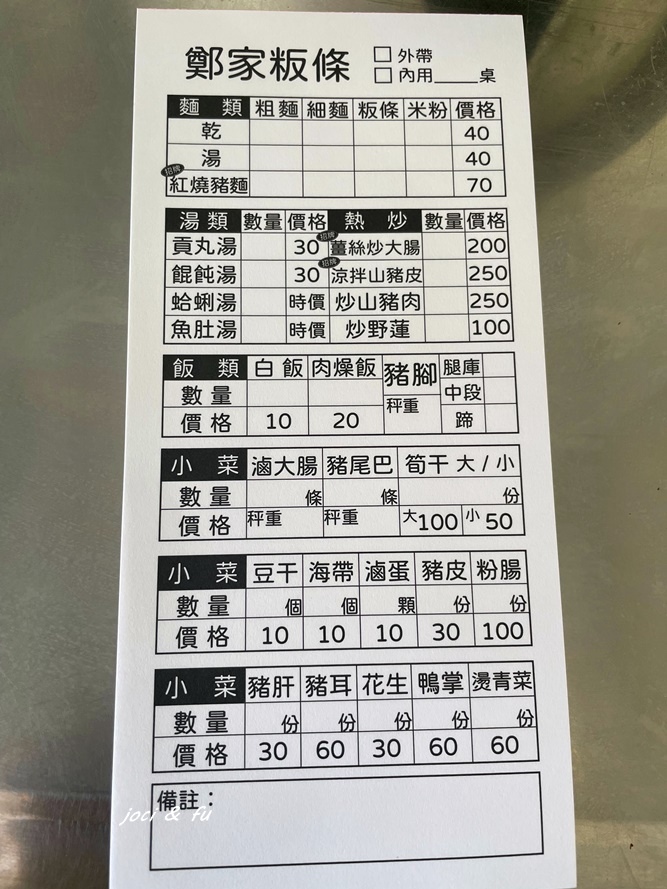 鄭家粄條 □ 外帶
□ 內用____桌
麵 類 粗麵 細麵 粄條 米粉 價格
乾 40
湯 40
招牌
紅燒豬麵 70
湯類 數量 價格 熱 炒 數量 價格
貢丸湯 30 招牌 薑絲炒大腸 200
餛飩湯 30 招牌 涼拌山豬皮 250
蛤蜊湯 時價 炒山豬肉 250
魚肚湯 時價 炒野蓮 100
飯 類 白飯 肉燥飯 豬腳 腿庫
數 量 秤重 中段
價 格 10 20 蹄
小 菜 滷大腸 豬尾巴 筍干 大 / 小
數 量 條 條 份
價 格 秤重 秤重 大100 小50
小 菜 豆干 海帶 滷蛋 豬皮 粉腸
數 量 個 個 顆 份 份
價 格 10 10 10 30 100
小 菜 豬肝 豬耳 花生 鴨掌 燙青菜
數 量 份 份 份 份 份
價 格 30 60 30 60 60
備註：
joci & fu